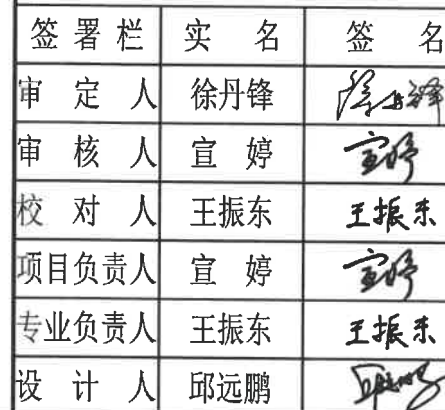 签署栏 实名 签名
审定人 徐丹锋 徐丹锋
审核人 宣婷 宣婷
校对人 王振东 王振东
项目负责人 宣婷 宣婷
专业负责人 王振东 王振东
设计人 邱远鹏